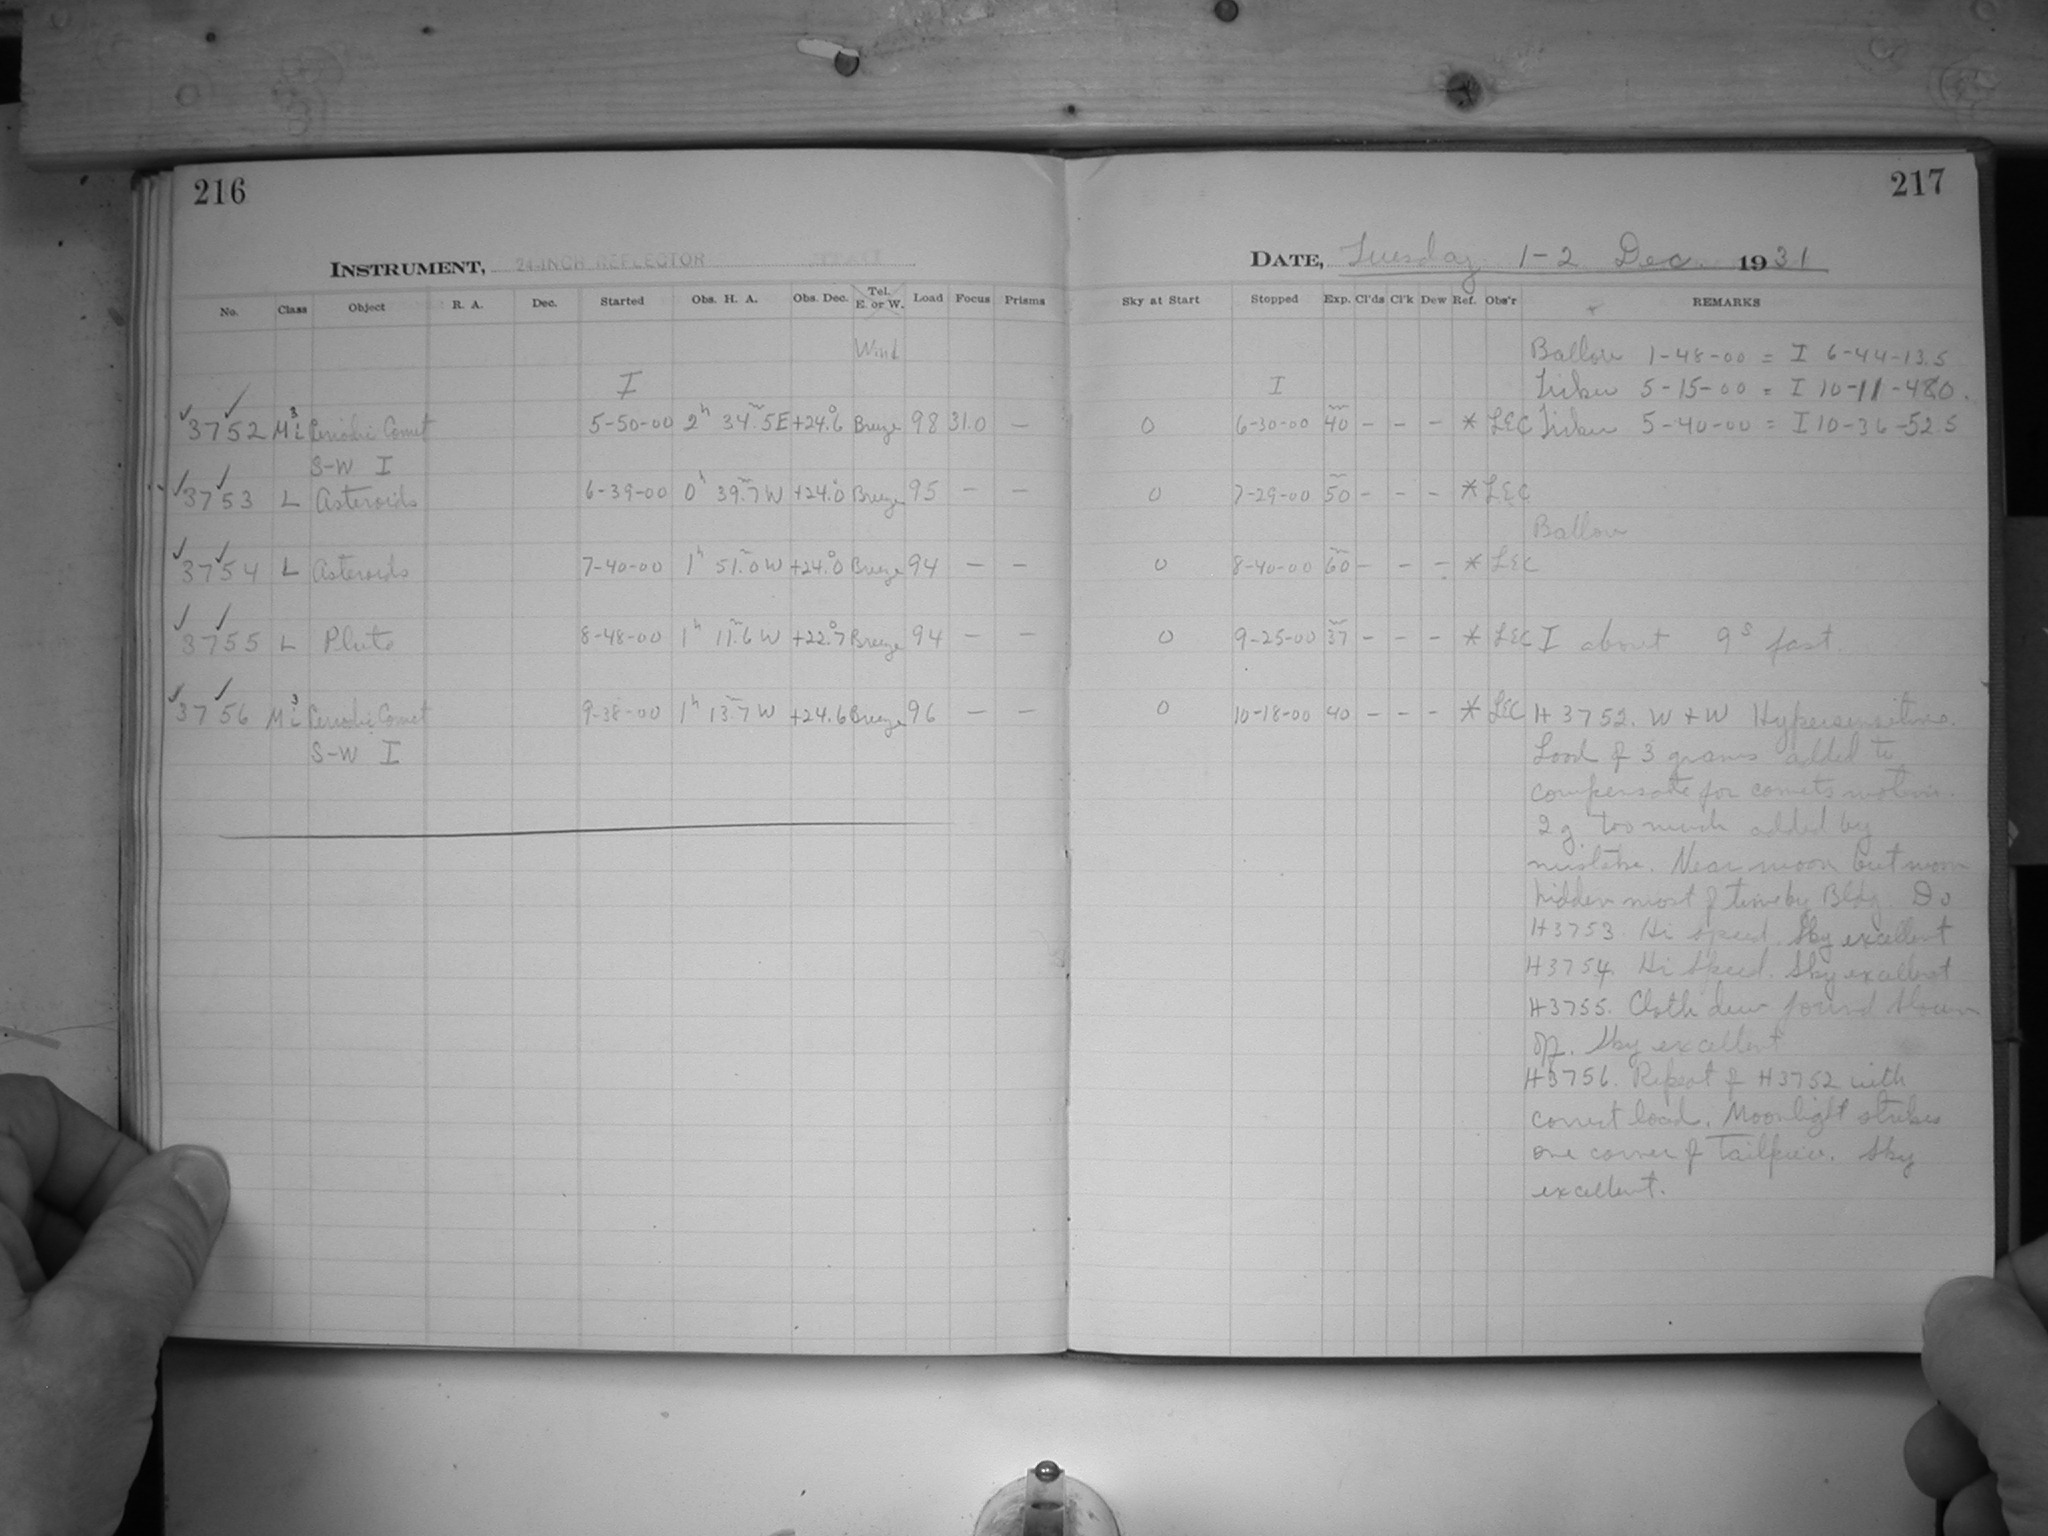 216
217
INSTRUMENT, 24-INCH REFLECTOR
DATE, Tuesday 1-2 Dec 1931
No. Class Object R. A. Dec. Started Obs. H. A. Obs. Dec. Tel. E. or W. Load Focus Prisms Sky at Start Stopped Exp. Cl'ds Cl'k Dew Ref. Obs'r REMARKS
Wind
1-48-00 = I 6-44-13.5
I I 5-15-00 = I 10-11-48.0.
3752 Periodic Comet 5-50-00 2h 34m.5E +24°.6 Breeze 98 31.0 — 0 6-30-00 40m - - - * LEC 5-40-00 = I 10-36-52.5
S-W I
3753 L Asteroids 6-39-00 0h 39m.7W +24°.0 Breeze 95 — — 0 7-29-00 50m - - - * LEC
3754 L Asteroids 7-40-00 1h 51m.0W +24°.0 Breeze 94 — — 0 8-40-00 60m - - - * LEC
3755 L Pluto 8-48-00 1h 11m.6W +22°.7 Breeze 94 — — 0 9-25-00 37m - - - * LEC I about 9s fast.
3756 Periodic Comet 9-38-00 1h 13m.7W +24.6 Breeze 96 — — 0 10-18-00 40 - - - * LEC H3752. W & W Hypersensitive.
S-W I
Load of 3 grams added to
compensate for comets motion.
2g. too much added by
mistake. Near moon but moon
hidden most of time by Bldg. Do
H3753. Hi speed. Sky excellent
H3754. Hi Speed. Sky excellent
H3755. Cloth dew found blown
op. Sky excellent
H3756. Repeat of H3752 with
correct load. Moonlight strikes
one corner of Tailpiece. Sky
excellent.